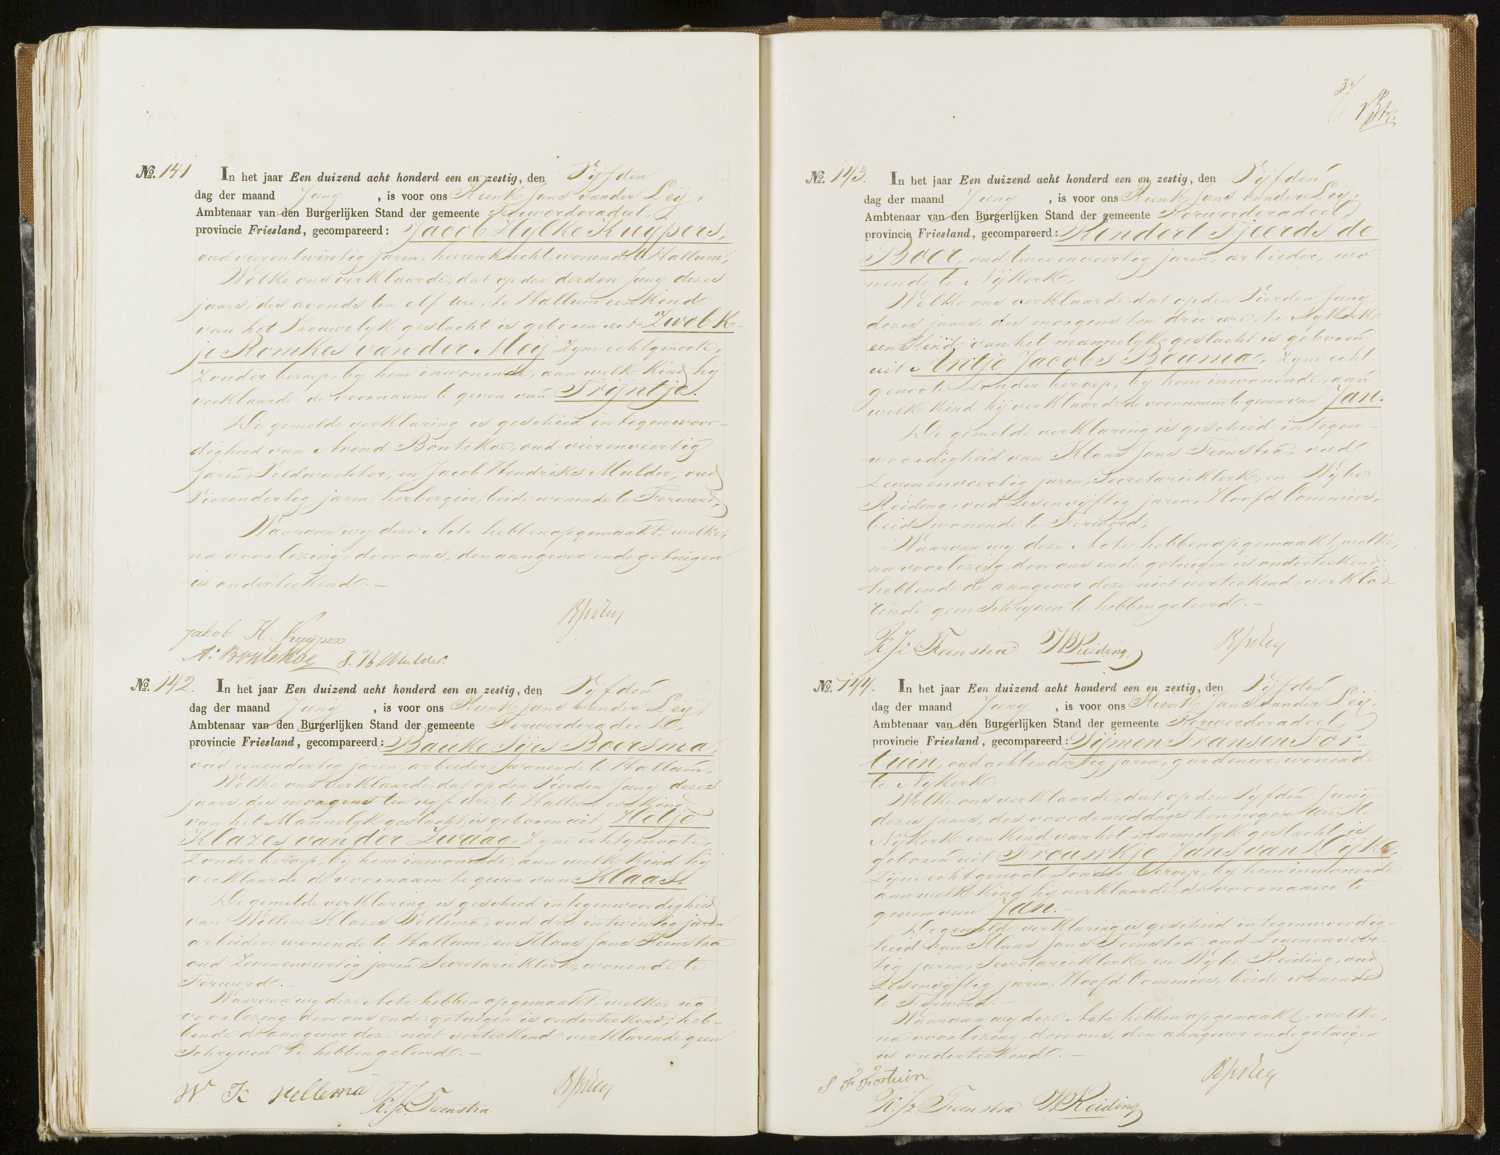 No. 141 In het jaar Een duizend acht honderd een en zestig, den Vyfden
dag der maand Juny , is voor ons Rienk Jans van der Leij,
Ambtenaar van den Burgerlijken Stand der gemeente Ferwerderadeel,
provincie Friesland, gecompareerd: Jacob Hylke Kuypers,
oud vierentwintig jaren, heerenknecht, wonende te Hallum,
Welke ons verklaarde, dat op den derden Juny dezes
jaars, des avonds ten elf ure, te Hallum een kind
van het Vrouwelyk geslacht is geboren uit Zwobk-
je Romkes van der Meij, Zyne echtgenoote,
Zonder beroep, by hem inwonende, aan welk kind hy
verklaarde de voornaam te geven van Trijntje.
De gemelde verklaring is geschied in tegenwoor-
digheid van Arend Bontekoe, oud vierenveertig
jaren, Veldwachter, en Jacob Hendriks Mulder, oud
Vierendertig jaren, herbergier, beide wonende te Ferwerd,
Waarvan wy deze Acte hebben opgemaakt, welke,
na voorlezing, door ons, den aangever en de getuigen
is onderteekend. —
Jakob H Kuypers
RJvdLey
A. Bontekoe J. H. Mulder.
No. 142. In het jaar Een duizend acht honderd een en zestig, den Vyfden
dag der maand Juny , is voor ons Rienk Jans van der Leij,
Ambtenaar van den Burgerlijken Stand der gemeente Ferwerderadeel,
provincie Friesland, gecompareerd: Bauke Sijes Boersma,
oud eenendertig jaren, arbeider, wonende te Hallum,
Welke ons verklaarde, dat op den Vierden Juny dezes
jaars, des morgens ten vyf ure, te Hallum een kind
van het Mannelyk geslacht is geboren uit,
Klazes van der Zwaag, Zyne echtgenoote,
Zonder beroep, by hem inwonende, aan welk kind hy
verklaarde de voornaam te geven van Klaas.
De gemelde verklaring is geschied in tegenwoordigheid
van Willem Klazes Vellema, oud drie en twintig jaren
arbeider wonende te Hallum, en Klaas Jans Feenstra
oud Zevenenveertig jaren, Secretarieklerk, wonende te
Ferwerd. —
Waarvan wy deze Acte hebben opgemaakt, welke, na
voorlezing, door ons en de getuigen is onderteekend; heb-
bende de aangever deze niet verteekend verklarende geen
Schryven te hebben geleerd. —
W K Vellema
K. Js Feenstra
RJvdLey
37
No. 143. In het jaar Een duizend acht honderd een en zestig, den Vyfden
dag der maand Juny , is voor ons Rienk Jans van der Leij,
Ambtenaar van den Burgerlijken Stand der gemeente Ferwerderadeel,
provincie Friesland, gecompareerd: Rindert Sjoerds de
Boer, oud tweeenveertig jaren, arbeider, wo-
nende te Nijkerk,
Welke ons verklaarde, dat op den Vierden Juny
dezes jaars, des morgens ten drie ure, te Nijkerk
een kind van het mannelijk geslacht is geboren
uit Antje Jacobs Bouma, Zyne echt
genoote Zonder beroep, by hem inwonende, aan
welk kind hij verklaarde de voornaam te geven van Jan.
De gemelde verklaring is geschied in tegen-
woordigheid van Klaas Jans Feenstra, oud
Zevenenveertig jaren, Secretarieklerk, en Wybe
Reiding, oud Zesenvyftig jaren, Hoofd Commies,
beide wonende te Ferwerd,
Waarvan wy deze Acte hebben opgemaakt, welke,
na voorlezing door ons en de getuigen is onderteekend;
hebbende de aangever deze niet verteekend, verkla-
rende geen Schryven te hebben geleerd. —
K. Js Feenstra W Reiding RJvdLey
No. 144. In het jaar Een duizend acht honderd een en zestig, den Vyfden
dag der maand Juny , is voor ons Rienk Jans van der Leij,
Ambtenaar van den Burgerlijken Stand der gemeente Ferwerderadeel,
provincie Friesland, gecompareerd: Sijmon Fransen For-
tuin, oud achtendertig jaren, gardenier, wonende
te Nijkerk
Welke ons verklaarde, dat op den Vyfden Juny
dezes jaars, des voormiddags ten negen ure te
Nijkerk een kind van het Mannelijk geslacht is
geboren uit Trouwkje Jans van Dijk,
Zijne echtgenoot Zonder beroep, by hem inwonende
aan welk kind hij verklaarde de voornaam te
geven van Jan. —
De gemelde verklaring is geschied in tegenwoordig-
heid van Klaas Jans Feenstra, oud Zevenenveer-
tig jaren, Secretarieklerk, en Wybe Reiding, oud
Zesenvyftig jaren, Hoofd Commies, beide wonende
te Ferwerd —
Waarvan wy deze Acte hebben opgemaakt, welke,
na voorlezing door ons, den aangever en de getuigen
is onderteekend. —
S F Fortuin
RJvdLey
K. Js Feenstra W Reiding